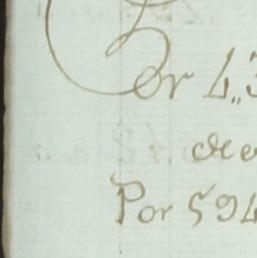 Por 4,,3
de
Por 594